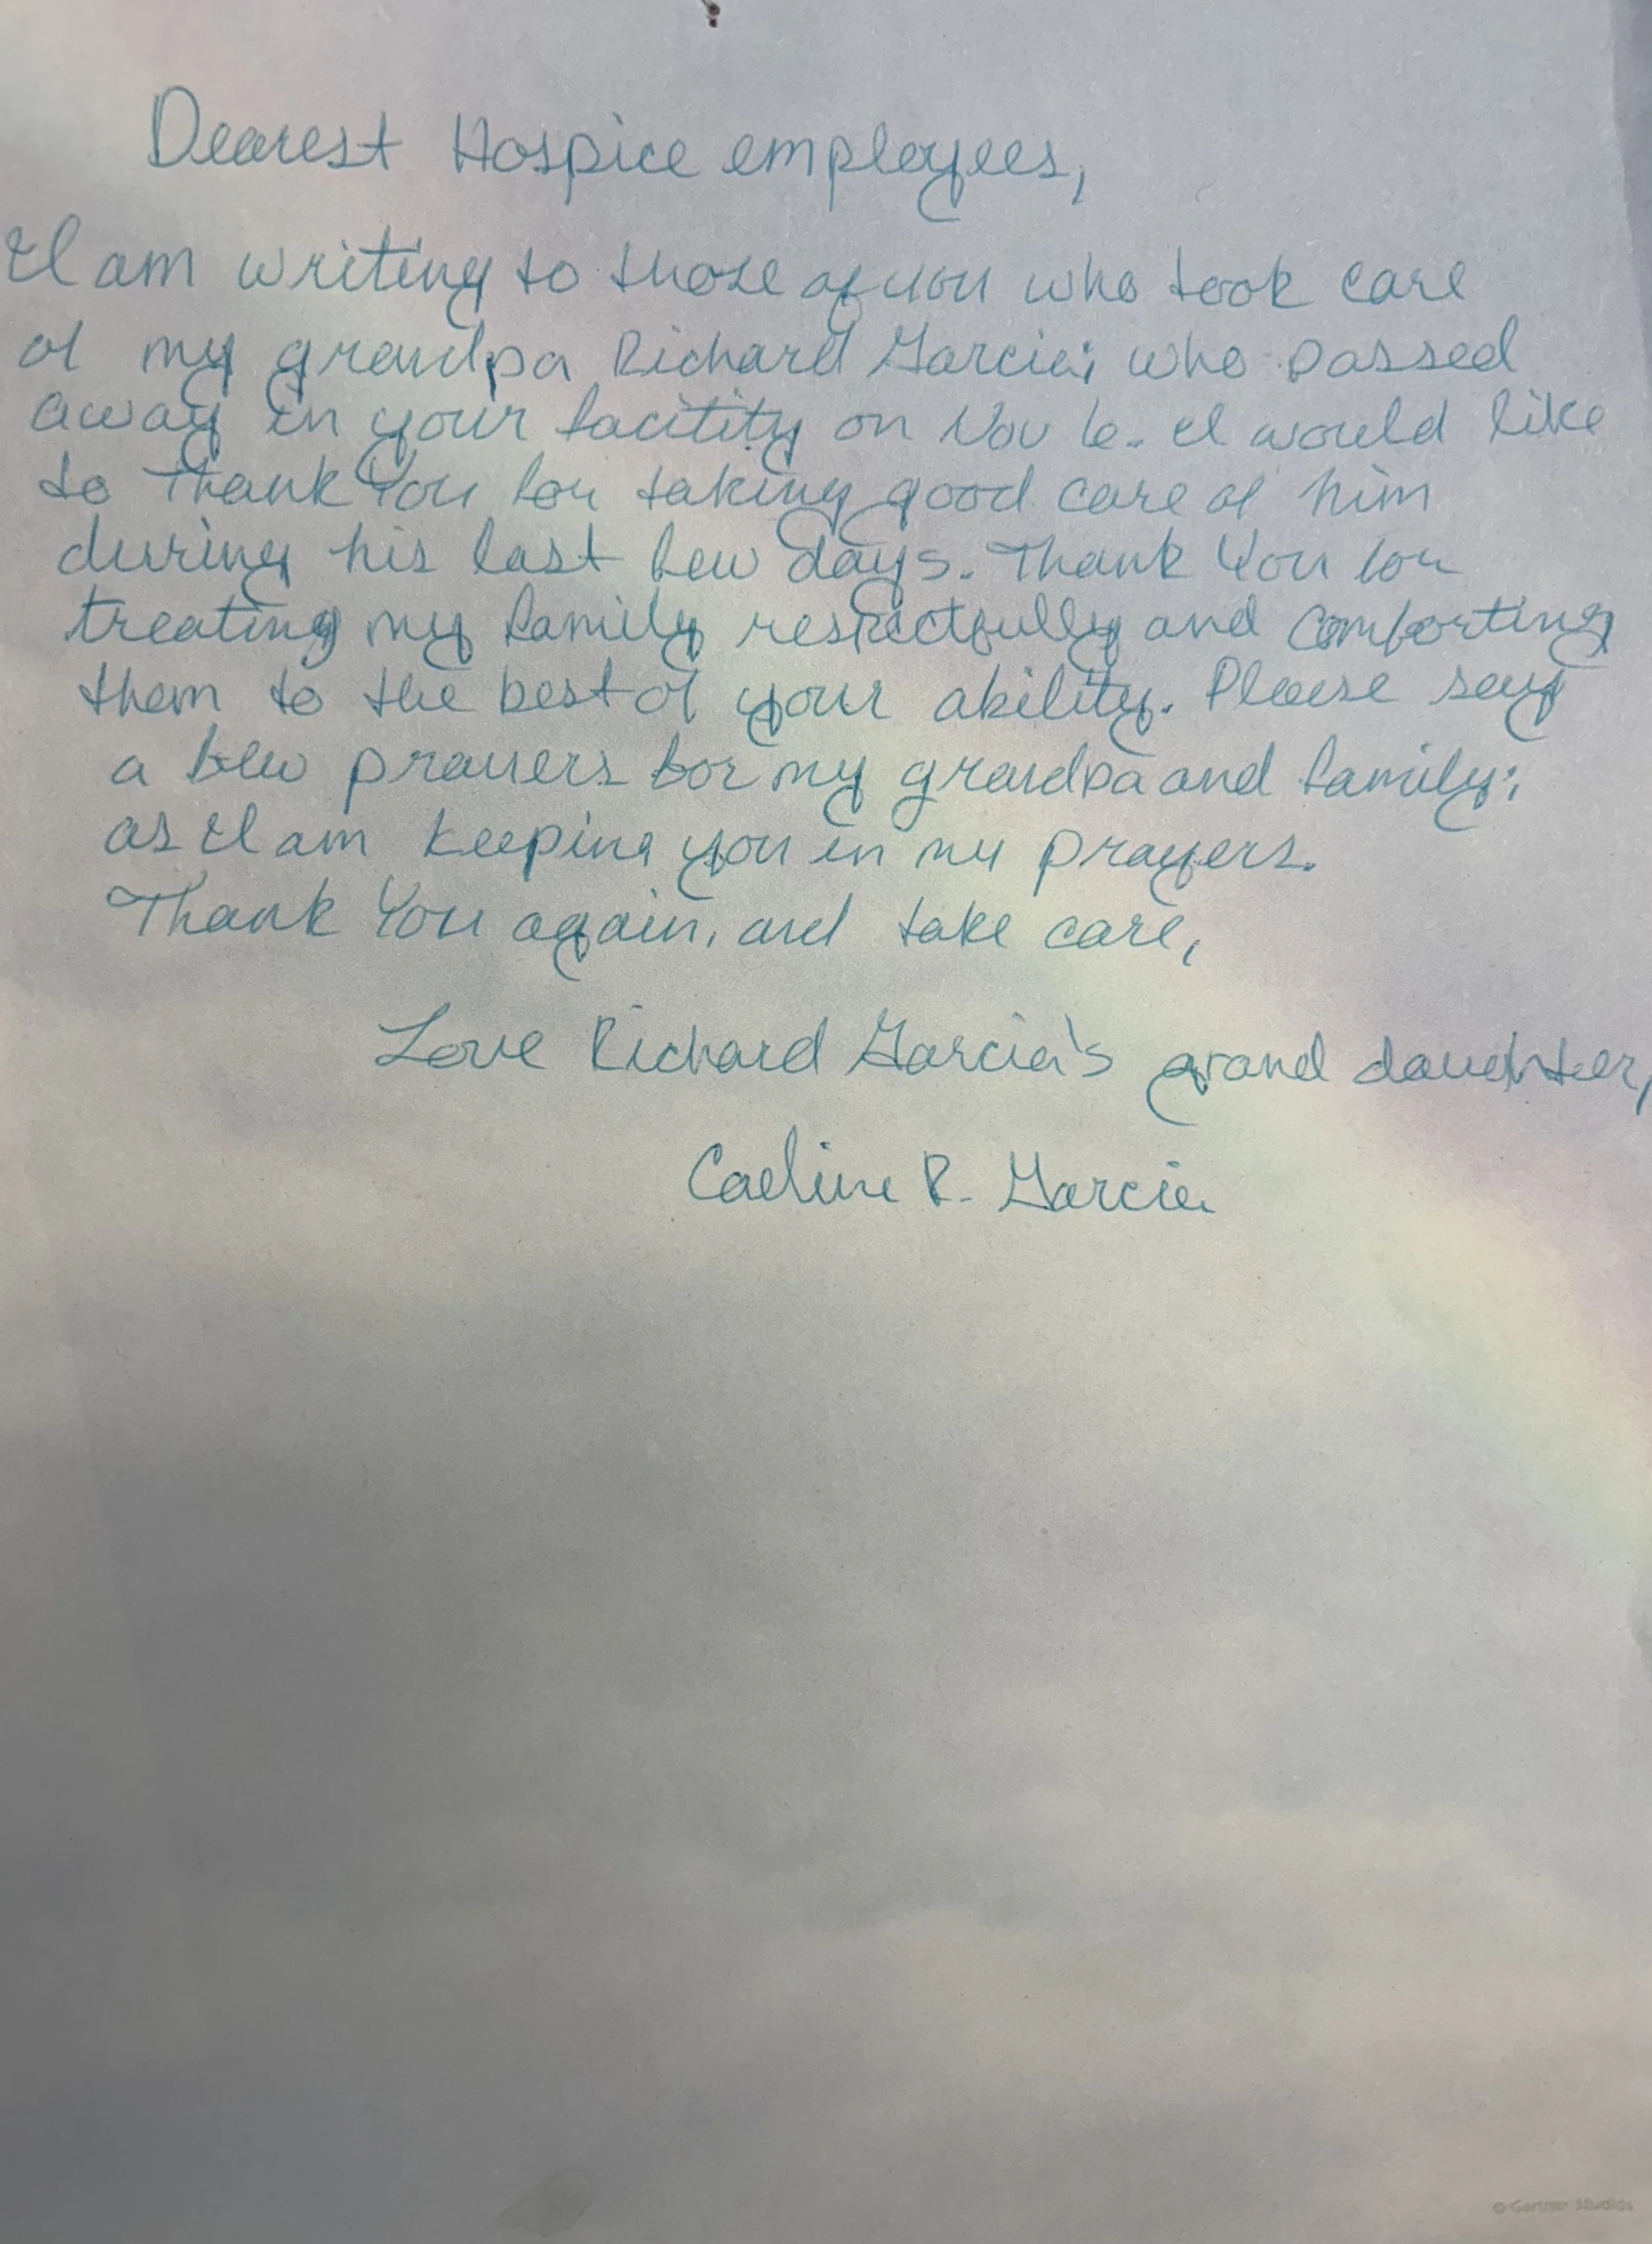 Dearest Hospice employees,
I am writing to those of you who took care
of my grandpa Richard Garcia; who passed
away in your facitity on Nov 6. I would like
to Thank You for taking good care of him
during his last few days. Thank You for
treating my family respectfully and comforting
them to the best of your ability. Please say
a few prayers for my grandpa and family;
as I am keeping you in my prayers.
Thank You again, and take care,
Love Richard Garcia's grand daughter,
Caeline R. Garcia
© Gartner Studios